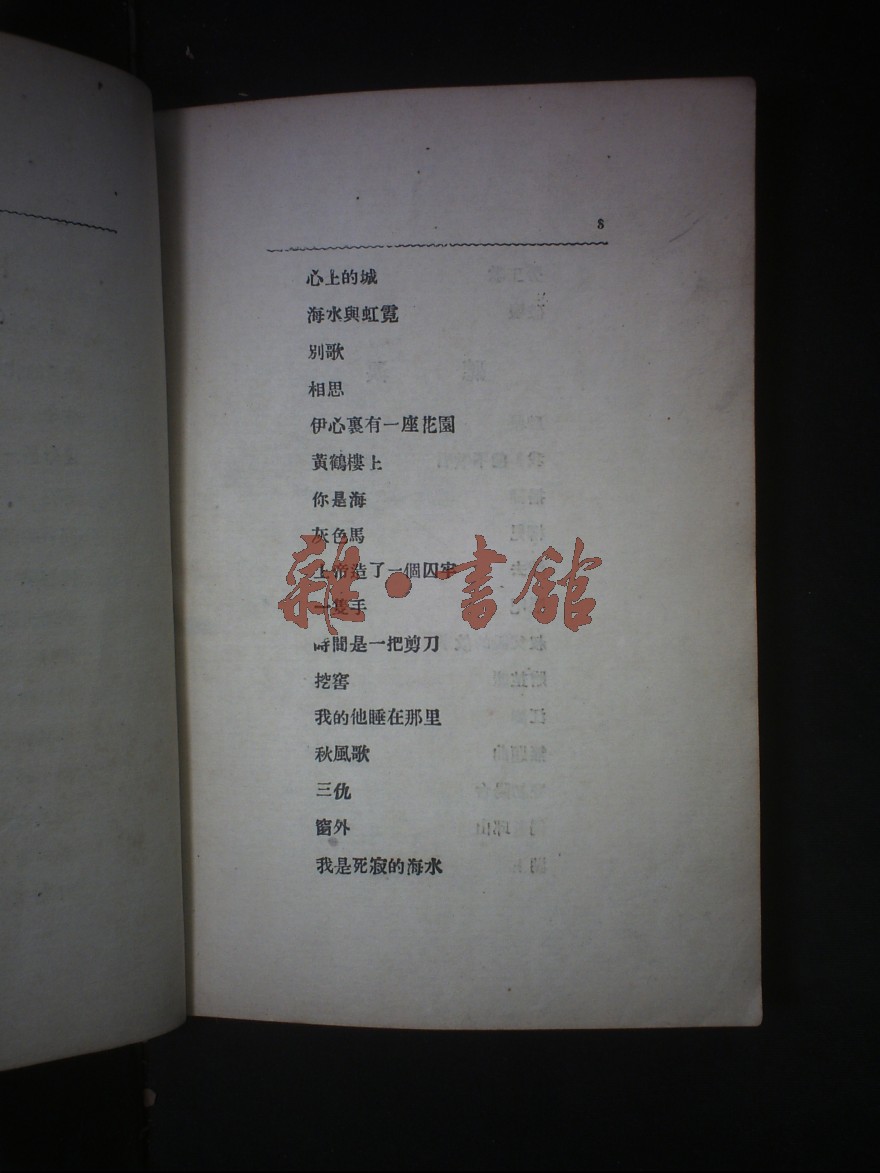 8
心上的城
海水與虹霓
別歌
相思
伊心裏有一座花園
黃鶴樓上
你是海
灰色馬
上帝造了一個囚牢
一隻手
時間是一把剪刀
挖窖
我的他睡在那里
秋風歌
三仇
窗外
我是死寂的海水
雜·書館